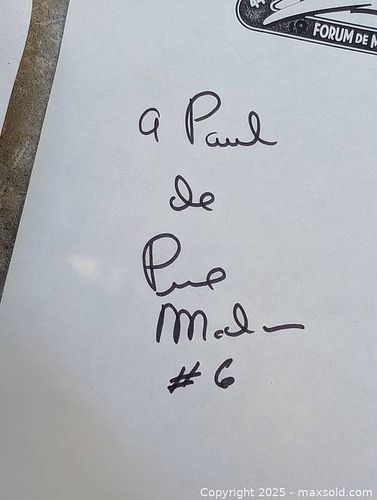 4
FORUM DE M
a Paul
de
#6
Copyright 2025 - maxsold.com